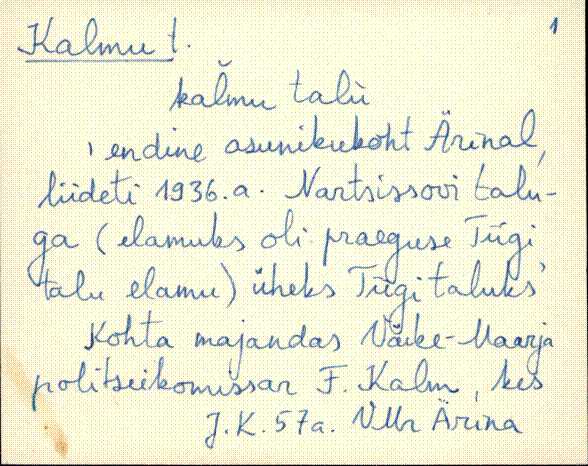 Kalmu t.
1
kal̆mu talù
' endine asunikukoht Ärinal,
liideti 1936.a. Nartsissovi talu-
ga (elamuks oli praeguse Tiigi
talu elamu) üheks Tiigi taluks'
Kohta majandas Väike-Maarja
politseikomissar F. Kalm, kes
J.K. 57a. VMr Ärina